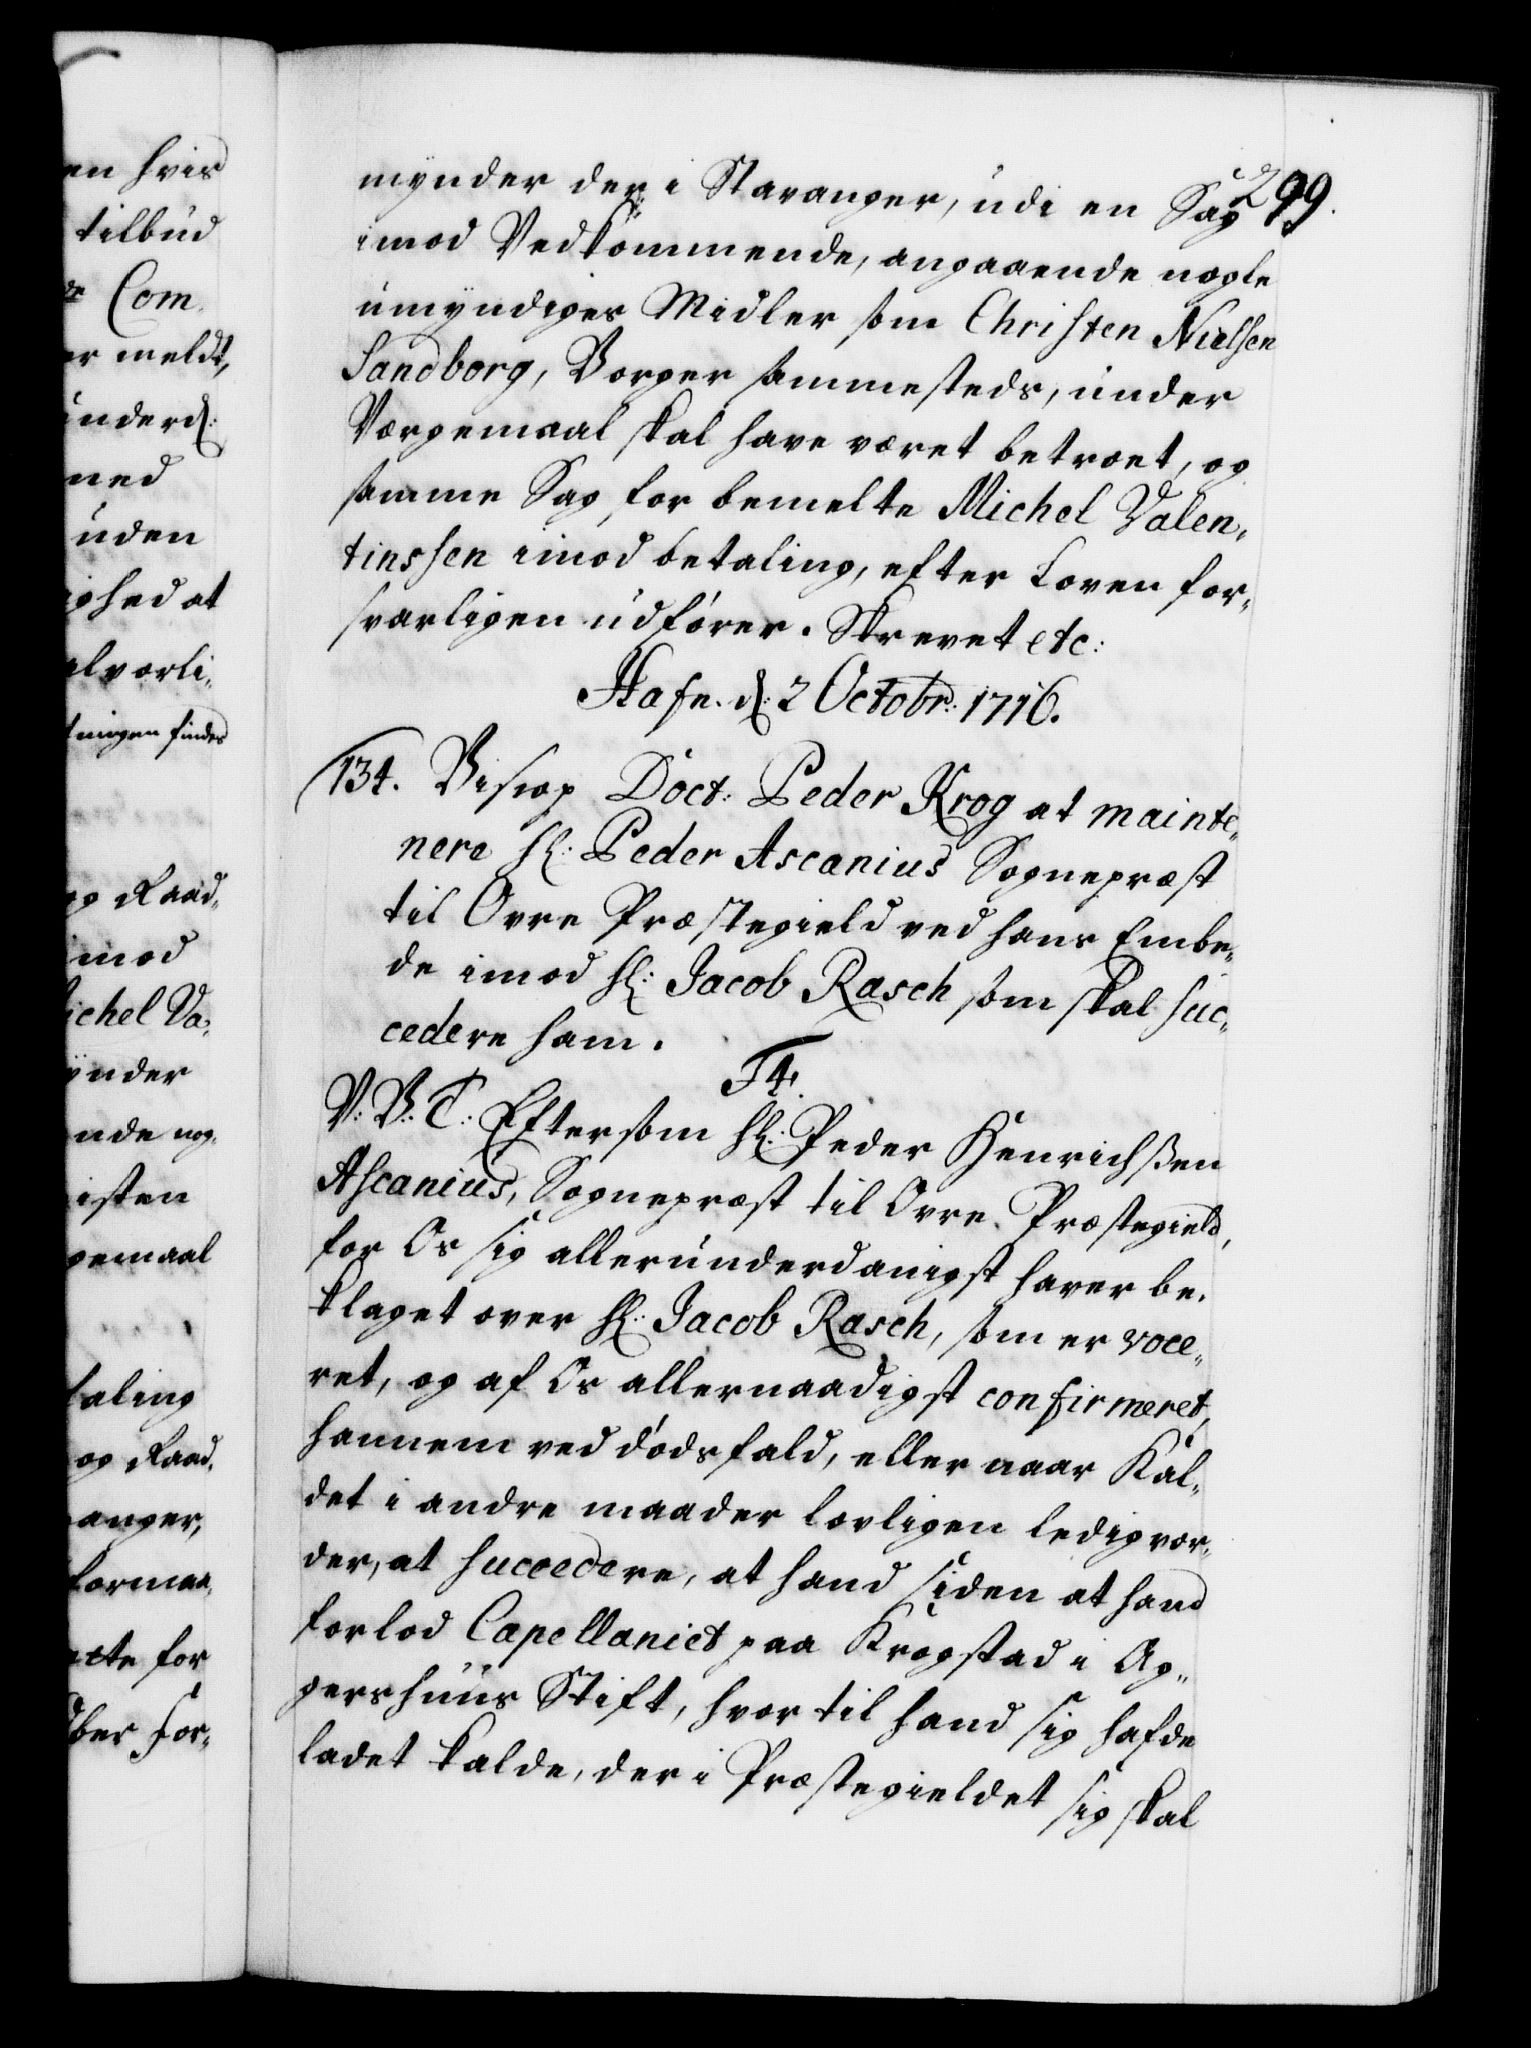 en hvis
tilbud
Com,
er meldt,
underd:
med
uden
ighed at
alvorli,
tningen findes
og Raad,
imod
ichel Va,
ynder
nde nog,
isten
gemaal
taling
og Raad,
anger,
formaa,
ette for
ober for,
299.
mynder der i Stavanger, udi en Sag
imod Vedkommende, angaaende nogle
umyndiges Midler som Christen Nielsen
Sandborg, Borger sammesteds, under
Værgemaal skal have været betroet, og
samme Sag for bemelte Michel Valen,
tinssen imod betaling, efter Loven for,
svarligen udfører. Skrevet etc:
Hafn. d: 2 Octobr: 1716.
134. Biscop Doct: Peder Krog at mainte,
nere Hr: Peder Ascanius Sognepræst
til Ovre Præstegield ved hans Embe,
de imod Hr: Jacob Rasch som skal suc,
cedere ham.
F4.
V: B: T: Eftersom Hr: Peder Henrichssen
Ascanius, Sognepræst til Ovre Præstegield,
for Os sig allerunderdanigst haver be,
klaget over Hr: Jacob Rasch, som er voce,
ret, og af Os allernaadigst confirmeret,
hannem ved dødsfald, eller naar Kal,
det i andre maader lovligen ledig vor,
der, at succedere, at hand siden at hand
forlod Capellaniet paa Krogstad i Ag,
gershuus Stift, hvor til hand sig hafde
ladet kalde, der i Præstegieldet sig skal